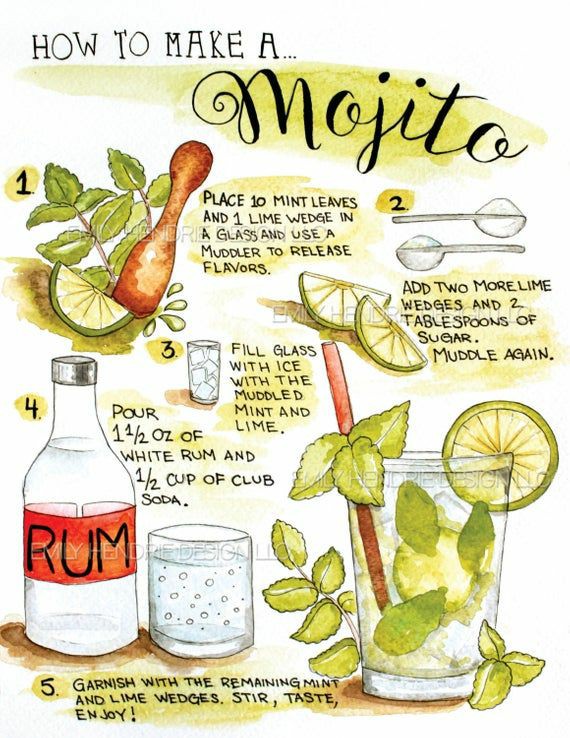 HOW TO MAKE A...
Mojito
1
PLACE 10 MINT LEAVES
AND 1 LIME WEDGE IN
A GLASS AND USE A
MUDDLER TO RELEASE
FLAVORS.
2.
ADD TWO MORE LIME
WEDGES AND 2
TABLESPOONS OF
SUGAR.
MUDDLE AGAIN.
3.
FILL GLASS
WITH ICE
WITH THE
MUDDLED
MINT AND
LIME.
4.
POUR
1 1/2 OZ OF
WHITE RUM AND
1/2 CUP OF CLUB
SODA.
RUM
5. GARNISH WITH THE REMAINING MINT
AND LIME WEDGES. STIR, TASTE,
ENJOY!
EMILY HENDRIE DESIGN LLC
EMILY HENDRIE DESIGN LLC
EMILY HENDRIE DESIGN LLC
EMILY HENDRIE DESIGN LLC